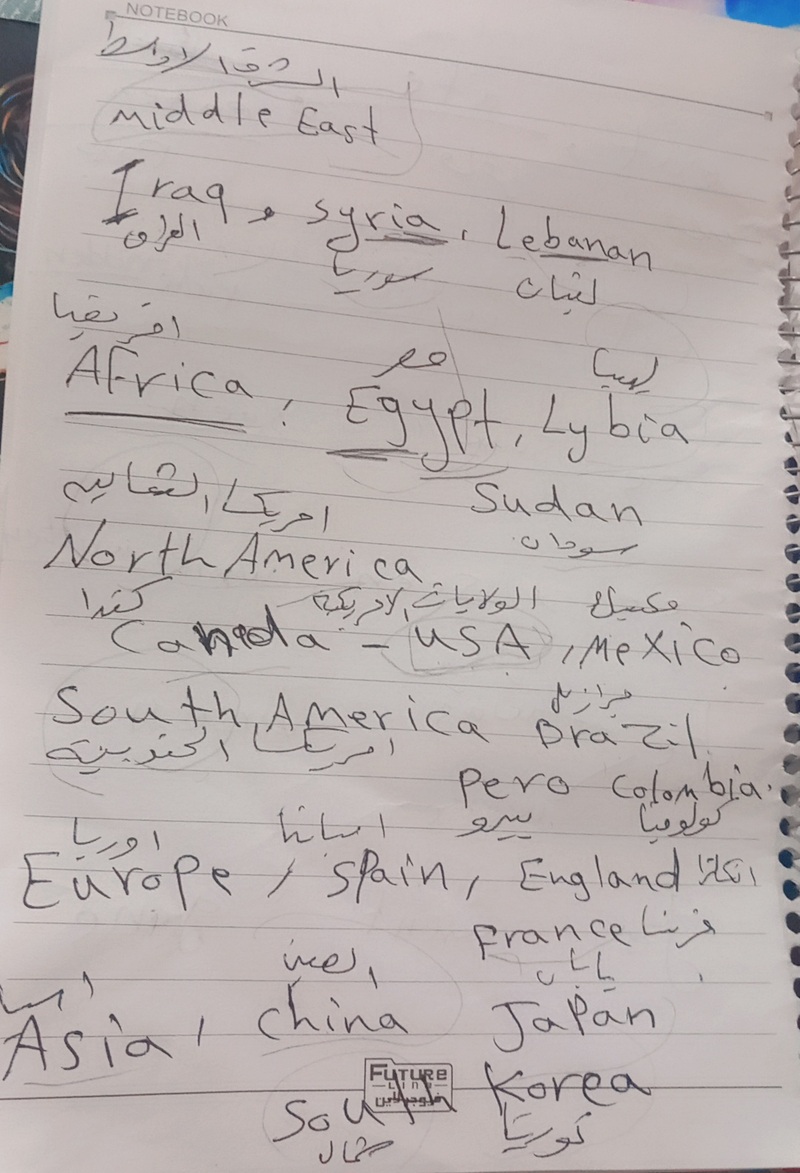 NOTEBOOK
الشرق الاوسط
Middle East
Iraq , Syria , Lebanan
العراق سوريا لبنان
افريقيا مصر ليبيا
Africa : Egypt, Lybia
امريكا الشماليه Sudan
سودان
North America
كندا الولايات الامريكية مكسيك
Caneda - USA , Mexico
برازيل
South America Brazil
امريكا الجنوبية
Pero Colombia.
اوربا اسبانيا بيرو كولومبيا
Europe / Spain, England انكلترا
France فرنسا
اسيا الصين يابان
Asia , China Japan
FUTURE
LINE
فيوجر لاين
Korea
South
شمال كوريا